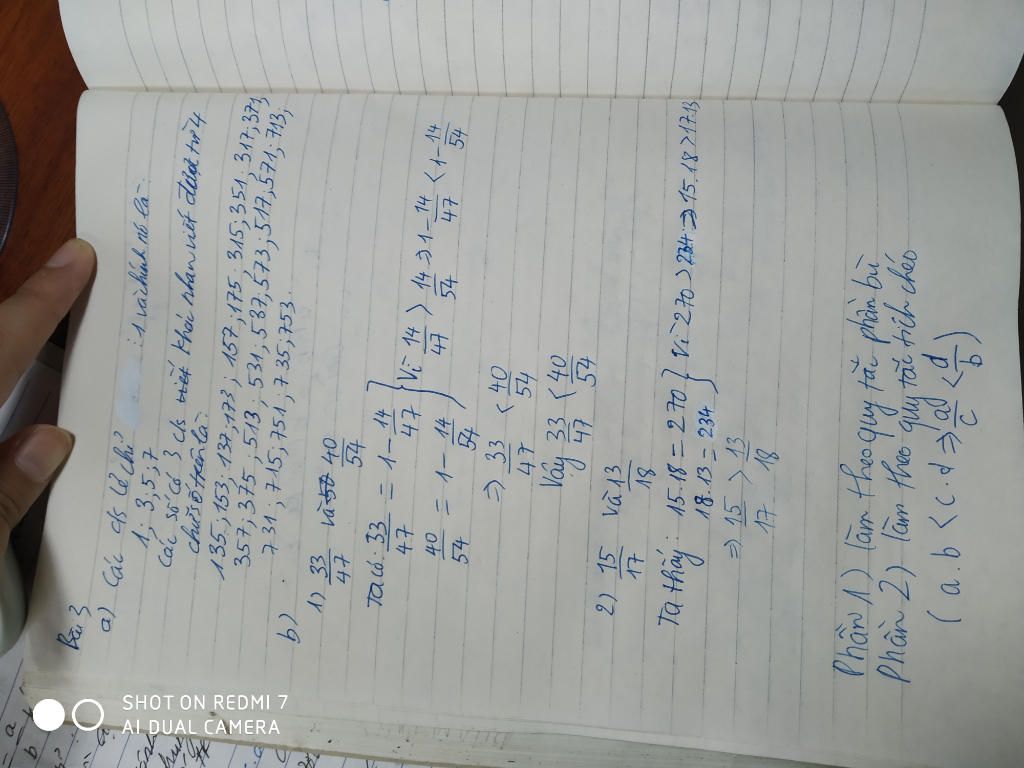 Bài 3
a) Các cs lẻ chỉ? : 1 vài hình th là:
1; 3; 5; 7
Các số có 3 cs khác nhau viết được từ 4
chữ số trên là:
135; 153; 137; 173; 157; 175; 315; 351; 317; 371;
357; 375; 513; 531; 537; 573; 517; 571; 713;
731; 715; 751; 735; 753.
b)
1) 33/47 và 40/54
Ta có: 33/47 = 1 - 14/47
40/54 = 1 - 14/54
Vì 14/47 > 14/54 => 1 - 14/47 < 1 - 14/54
=> 33/47 < 40/54
Vậy 33/47 < 40/54
2) 15/17 và 13/18
Ta thấy: 15.18 = 270
18.13 = 234
Vì 270 > 234 => 15.18 > 17.13
=> 15/17 > 13/18
Phần 1) làm theo quy tắc phần bù
Phần 2) làm theo quy tắc tích chéo
( a.b < c.d => a/c < d/b )
SHOT ON REDMI 7
AI DUAL CAMERA